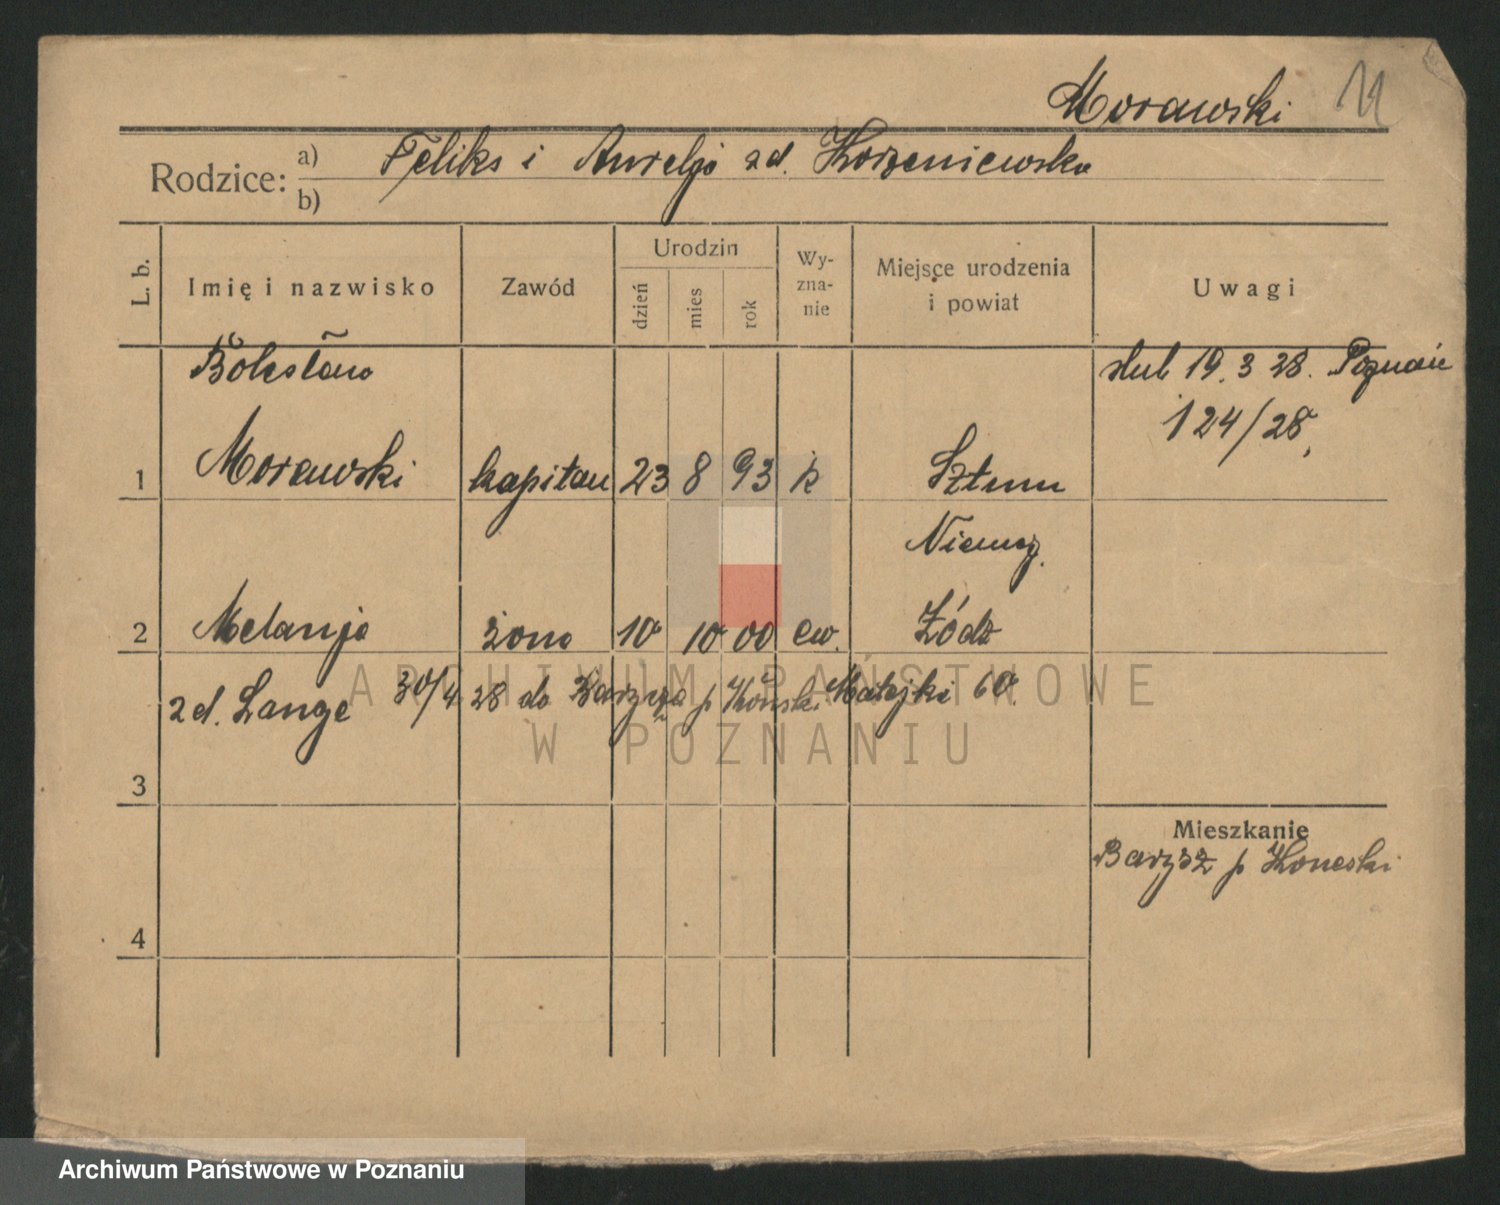 Morawski 11
Rodzice: a) Feliks i Aurelja zd. Korzeniewska
b)
L. b. Imię i nazwisko Zawód Urodzin dzień mies rok Wyznanie Miejsce urodzenia i powiat Uwagi
Bolesław ślub 19. 3 28. Poznań
124/28,
1 Morawski kapitan 23 8 93 k Sztum
Niemcy.
2 Melanja żona 10 10 00 ew. Łódź
zd. Lange 30/4 28 do p Matejki 60
3
Mieszkanie
Barysz p
4
ARCHIWUM PAŃSTWOWE
W POZNANIU
Archiwum Państwowe w Poznaniu